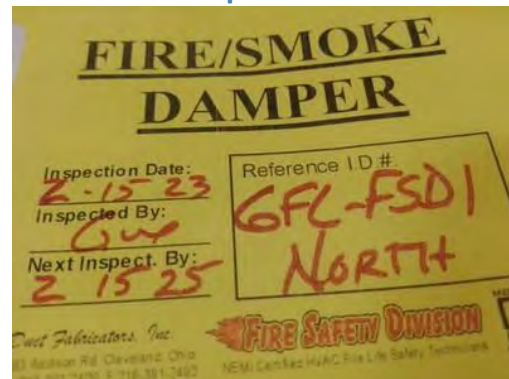 FIRE/SMOKE
DAMPER
Inspection Date:
2-15 23
Inspected By:
Gus
Next Inspect. By:
2 15 25
Reference I D #.
GFL-FSD1
NORTH
Duct Fabricators, Inc.
Rd. Cleveland, Ohio
FIRE SAFETY DIVISION
NEMI Certified HVAC Fire Life Safety Technicians